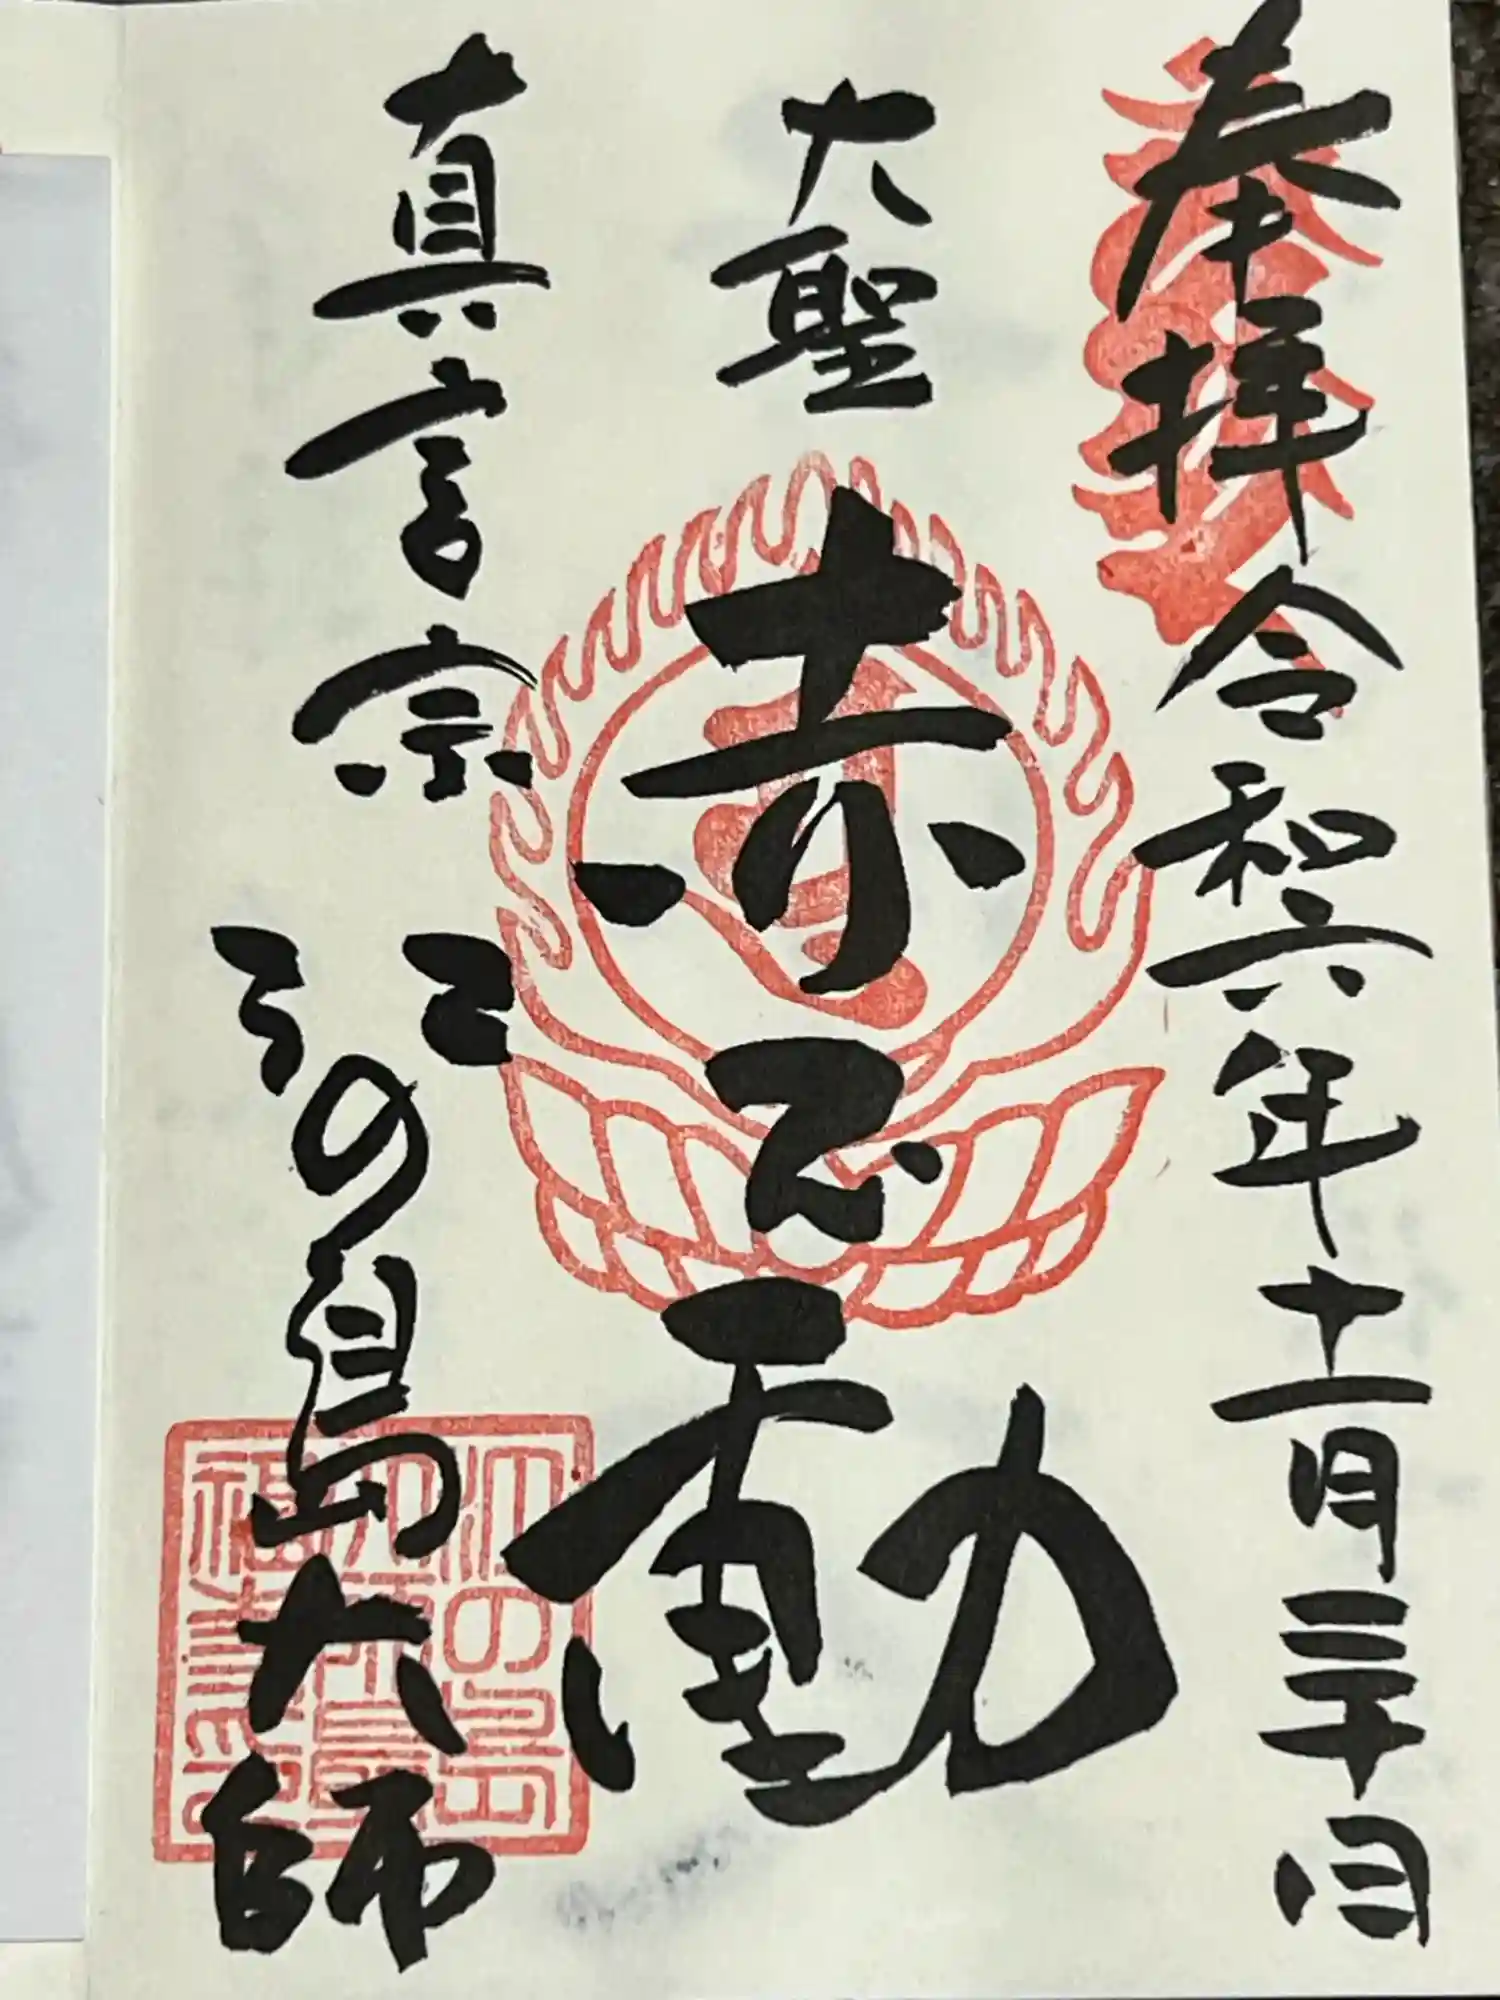 奉拝 令和六年十一月三十日
大聖 赤不動
真言宗 江の島大師